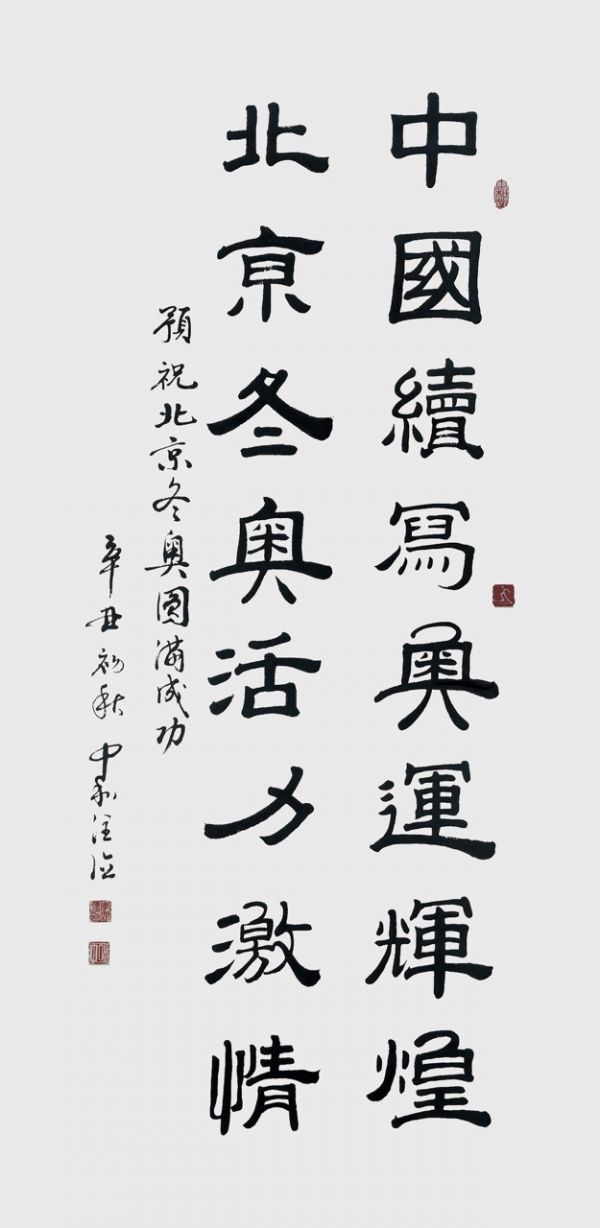 中國續寫奧運輝煌
北京冬奧活力激情
預祝北京冬奥圓滿成功
辛丑初秋中和